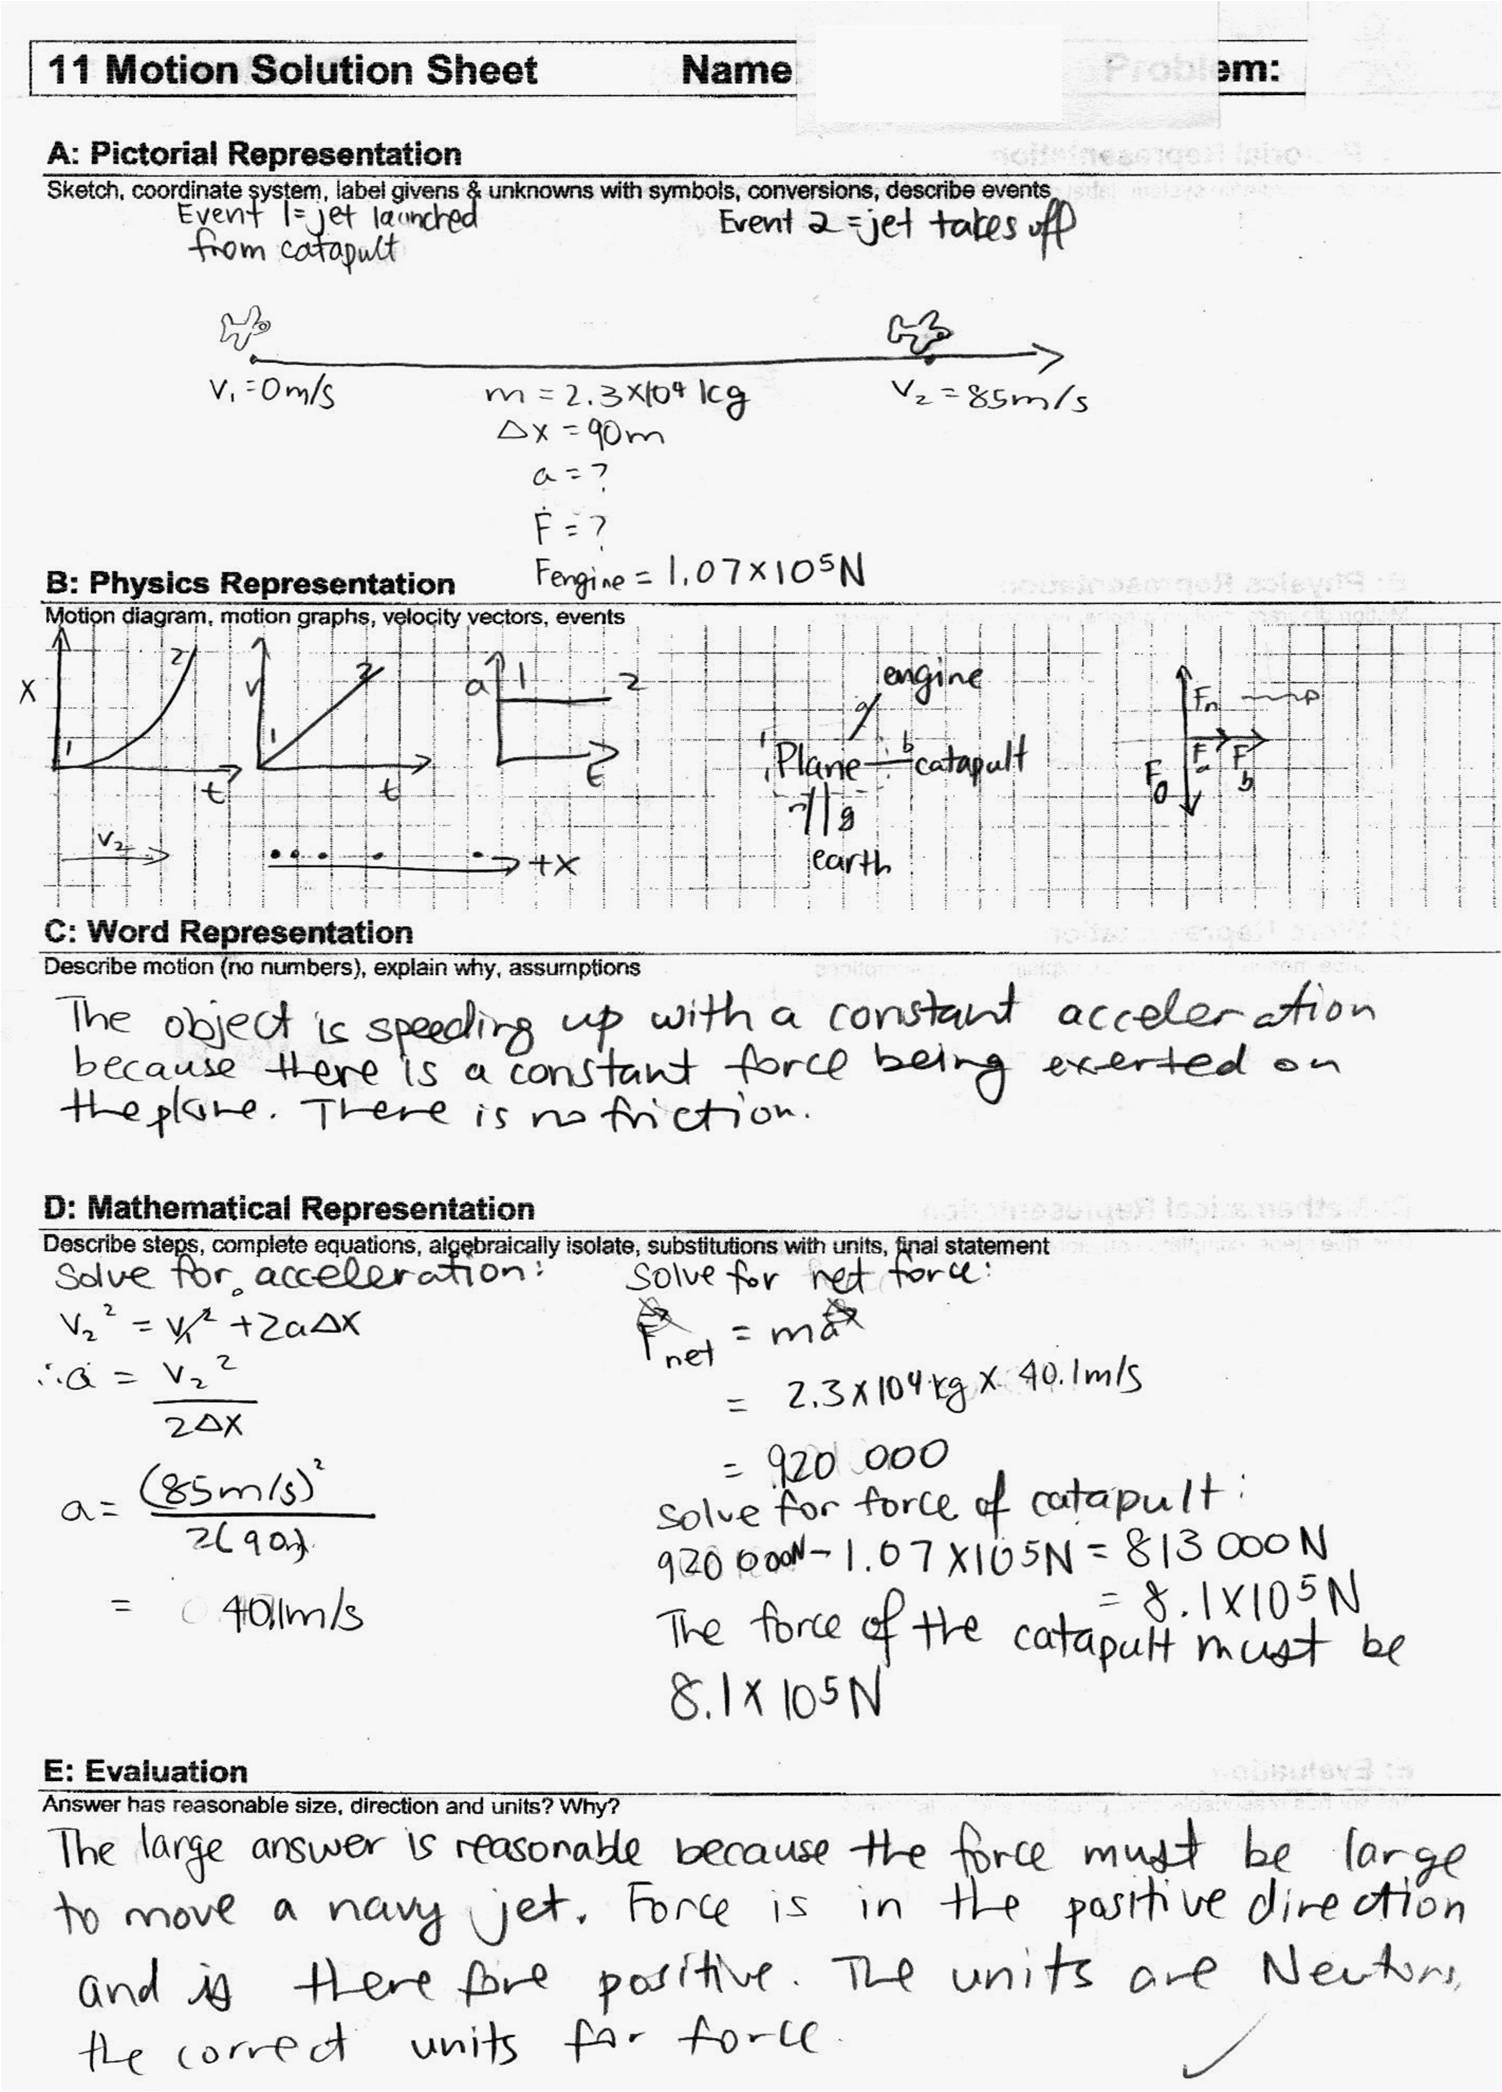 11 Motion Solution Sheet Name: Problem:
A: Pictorial Representation
Sketch, coordinate system, label givens & unknowns with symbols, conversions, describe events
Event 1 = jet launched
from catapult
Event 2 = jet takes off
V₁ = 0m/s
m = 2.3×10⁴ kg
V₂ = 85m/s
Δx = 90m
a = ?
F = ?
Fengine = 1.07×10⁵N
B: Physics Representation
Motion diagram, motion graphs, velocity vectors, events
x 1 2 t
v 1 2 t
a 1 2 t
V₂
+x
engine
a
Plane b catapult
n g
earth
Fn
Fa Fb
Fg
C: Word Representation
Describe motion (no numbers), explain why, assumptions
The object is speeding up with a constant acceleration
because there is a constant force being exerted on
the plane. There is no friction.
D: Mathematical Representation
Describe steps, complete equations, algebraically isolate, substitutions with units, final statement
Solve for acceleration:
V₂² = V₁² + 2aΔx
∴a = V₂²
2Δx
a = (85m/s)²
2(90m)
= 40.1m/s
Solve for net force:
Fnet = ma
= 2.3×10⁴kg × 40.1m/s
= 920 000
Solve for force of catapult:
920 000N - 1.07×10⁵N = 813 000N
= 8.1×10⁵N
The force of the catapult must be
8.1×10⁵N
E: Evaluation
Answer has reasonable size, direction and units? Why?
The large answer is reasonable because the force must be large
to move a navy jet. Force is in the positive direction
and is therefore positive. The units are Newtons,
the correct units for force.